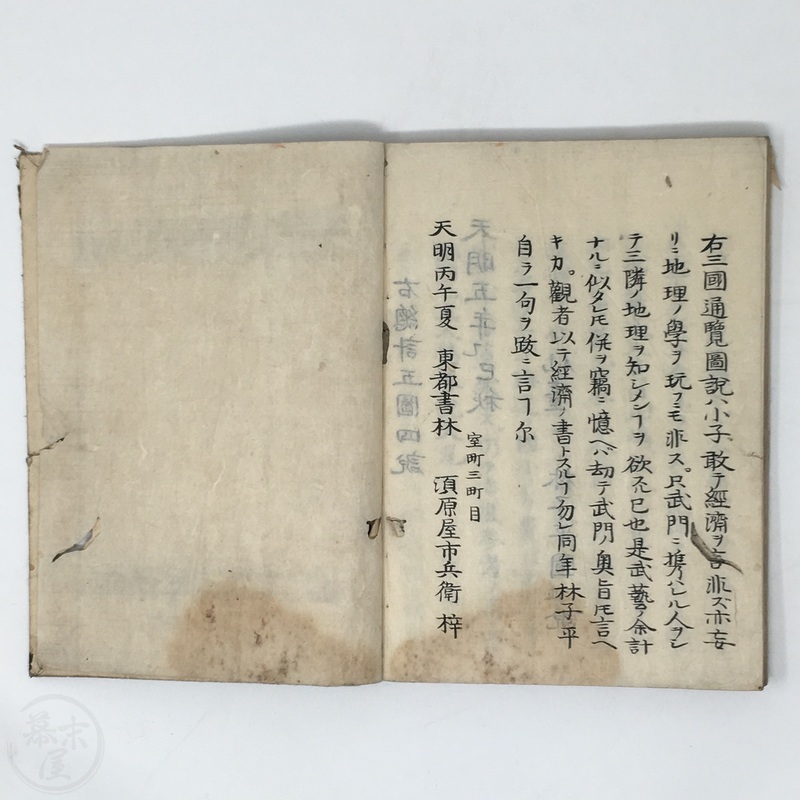 右三國通覧圖説ハ小子敢テ經濟ヲ言非ズ亦妄
リニ地理ノ學ヲ玩フニモ非ス。只武門ニ携ハレル人ヲシ
テ三隣ノ地理ヲ知シメンヿヲ欲スル已也是武藝ヲノ余計
ナルニ似タレ𪜈併ヲ竊ニ憶ヘバ却テ武門ノ奥旨𪜈言ヘ
キカ。觀者以テ經濟ノ書トスルヿ勿レ同年 林子平
自ラ一句ヲ跋ニ言フ尓
天明丙午夏 東都書林 室町三町目 須原屋市兵衛 梓
天明五年乙巳秋
右總計五圖四説
幕末屋